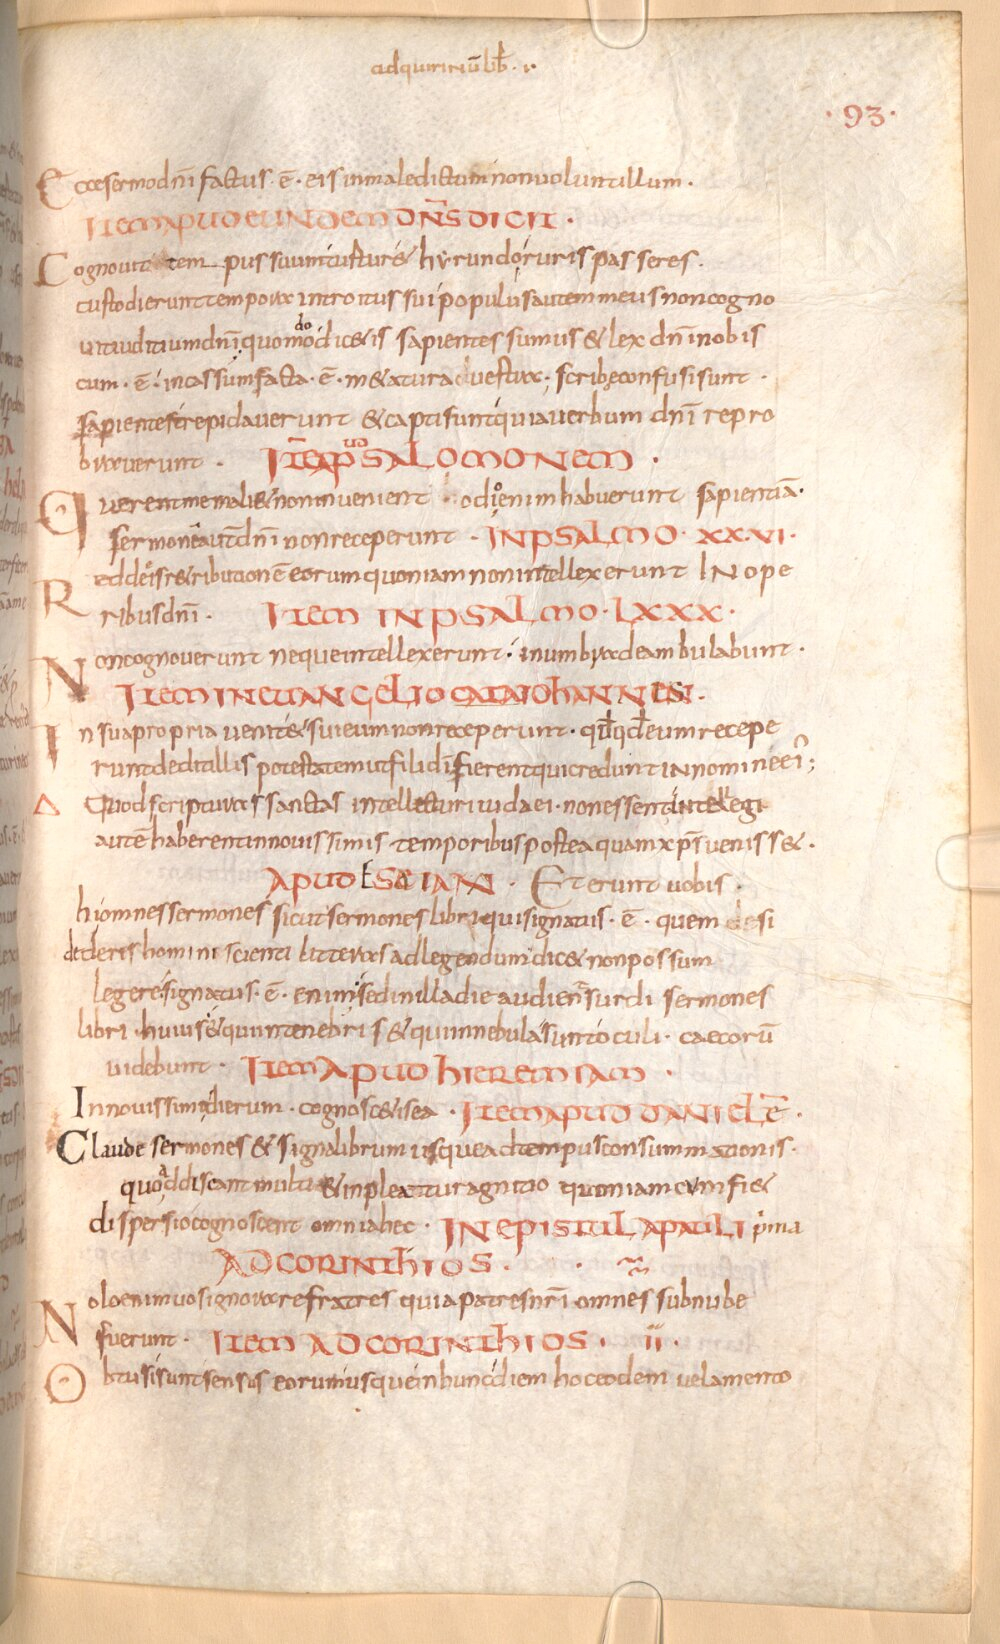 ad quirinū lib̄. ı.
· 93 ·
Ecce sermo dn̄i factus · ē · eis in maledictum in non volunt illum ·
ITEM APUD EUNDEM DN̄S DICIT ·
Cognovit tempus suum turtur & hyrundo ruris passeres ·
custodierunt tempora introitus sui populus autem meus non cogno
vit iuditium dn̄i quomodo dicetis sapientes sumus & lex dn̄i nobis
cum · ē · incassum facta · ē · metatura; scribe confusi sunt ·
sapientes trepidaverunt & capti sunt quia verbum dn̄i repro
baverunt · ITĒ APUD SALOMONEM ·
Querent me mali & non invenient · odio enim habuerunt sapientiā ·
sermonē aut̄ dn̄i non receperunt · IN PSALMO · XX·VI ·
Redde eis retributionē eorum quoniam non intellexerunt IN ope
ribus dn̄i · ITEM IN PSALMO · LXXX ·
Non cognoverunt neque intellexerunt · in umbra deambulabunt ·
ITEM IN EUANGELIO CATA IOHANNEM ·
In sua propria venit & sui eum non receperunt · qđqđ eum recepe
runt dedit illis potestatem ut fili dī fierent qui credunt IN nomine ei';
Quod scripturas sanctas intellecturi iudaei · non essent intellegi
autē haberent in novissimis temporibus posteaquam xp̄s venisset ·
APUD ESAIAM · Et erunt vobis ·
hi omnes sermones sicut sermones libri qui signatus · ē · quem si
dederis homini scienti litteras ad legendum dicet non possum
legere signatus · ē · enim sed in illa die audient surdi sermones
libri huius & qui in tenebris & qui in nebula sunt oculi · caecorū
videbunt · ITEM APUD HIEREMIAM ·
In novissimo dierum · cognoscetis ea · ITEM APUD DANIELĒ ·
Claude sermones & signa librum usque ad tempus consummationis ·
quoad discant multi & inpleatur agnitio quoniam cum fiet
dispersio cognoscent omnia hec · IN EPISTULA PAULI prima
AD CORINTHIOS ·
Nolo enim vos ignorare fratres quia patres nr̄i omnes sub nube
fuerunt · ITEM AD CORINTHIOS · II ·
Obtusi sunt sensus eorum usque in hunc diem hoc eodem velamento